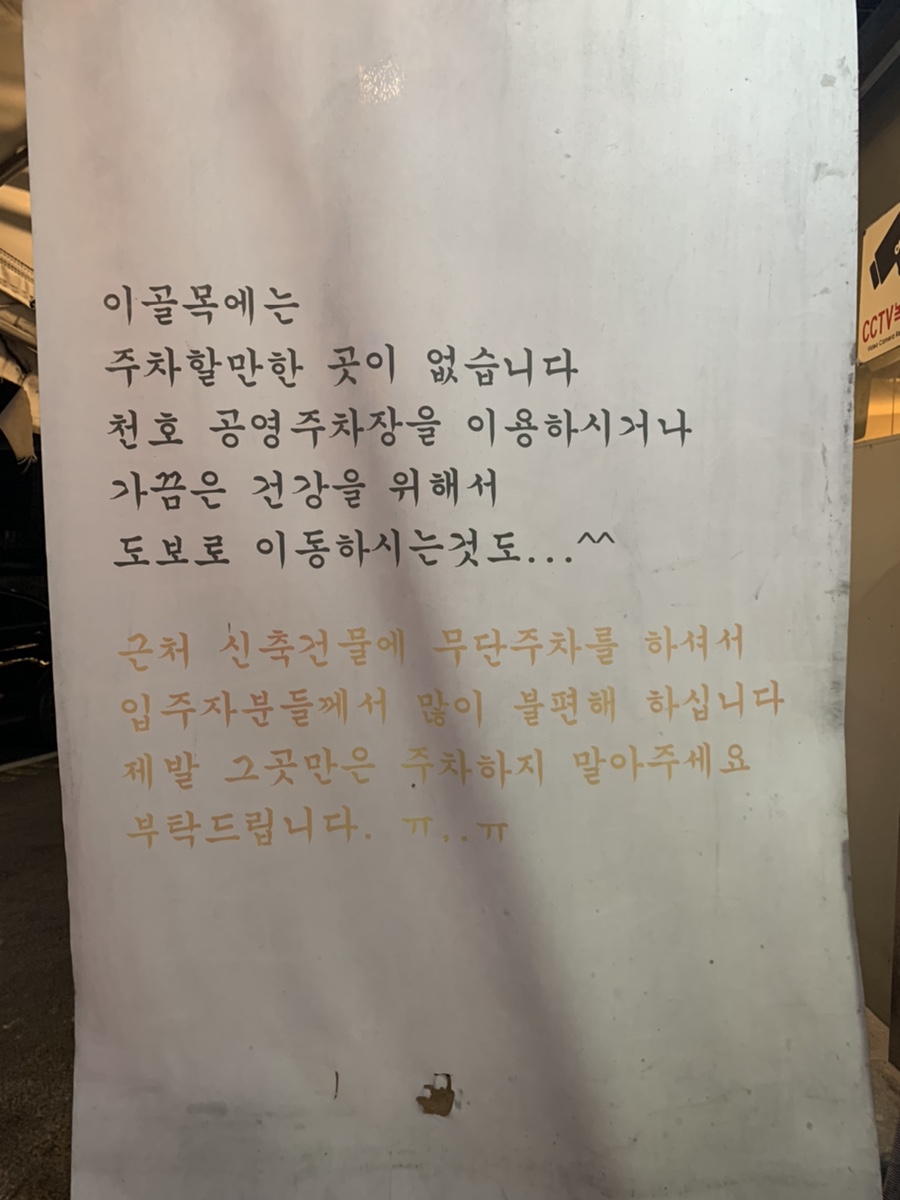 이골목에는
주차할만한 곳이 없습니다
천호 공영주차장을 이용하시거나
가끔은 건강을 위해서
도보로 이동하시는것도...^^
근처 신축건물에 무단주차를 하셔서
입주자분들께서 많이 불편해 하십니다
제발 그곳만은 주차하지 말아주세요
부탁드립니다. ㅠ,.ㅠ
CCTV
Video Camera